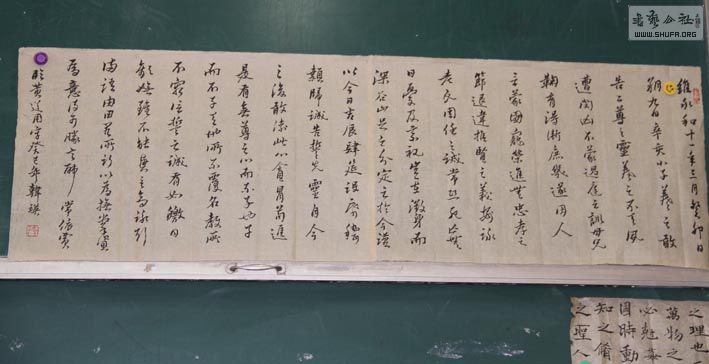 維永和十一年三月癸卯日
朔九日辛亥小子羲之敢
告二尊之靈羲之不天夙
遭閔凶不蒙過庭之訓母兄
鞠有得漸庶幾遂因人
乏蒙國寵榮進無忠孝之
節退違推賢之義每詠
老氏周任之誡常恐死亡無
日憂及宗祀豈在微身而
深谷止足之分定之於今謹
以今日吉辰肆筵設席稽
顙歸誠告誓先靈自今
之後敢渝此心貪冒苟進
是有無尊之心而不子也子
而不子天地所不覆名教所
不容信誓之誠有如皦日
歡嬉雖不能興言高詠引
滿語田里所行以為撫掌資
為意得可勝言邪 常依
臨黃道周字癸巳年韓瑛
之理也
萬物之
必
因時動
知之
之聖人
WWW.SHUFA.ORG